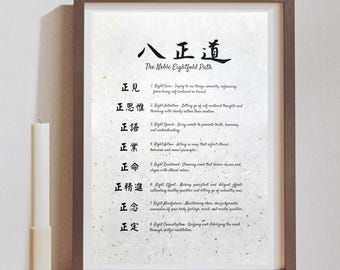 八正道
The Noble Eightfold Path
正見
1. Right View - Trying to see things correctly, refraining
from being self-centered or biased.
正思惟
2. Right Intention - Letting go of self-centered thoughts and
thinking with clearly values rather than emotion.
正語
3. Right Speech - Using words to promote truth, harmony,
and understanding.
正業
4. Right Action - Acting in ways that reflect ethical
behavior and moral principles.
正命
5. Right Livelihood - Choosing work that causes no one and
aligns with ethical values.
正精進
6. Right Effort - Making persistent and diligent effort-
cultivating healthy qualities and letting go of unhealthy ones.
正念
7. Right Mindfulness - Maintaining
awareness of your body, feelings, mind, and mental
正定
8. Right Concentration - Unifying and stabilizing the mind
through skillful meditation.